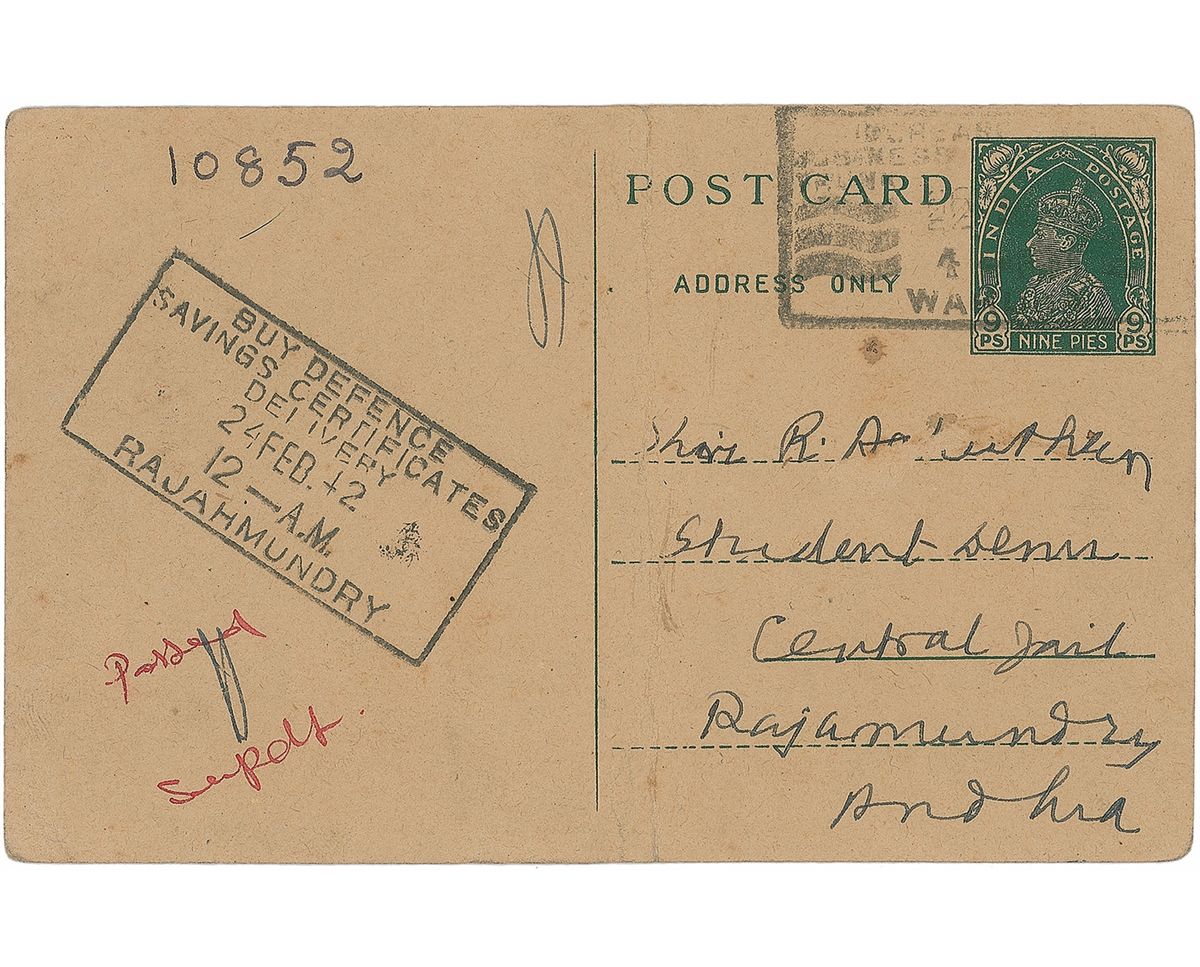 10852
BUY DEFENCE
SAVINGS CERTIFICATES
DELIVERY
24 FEB. 42
12—A.M.
RAJAHMUNDRY
Passed
Supdt.
POST CARD
ADDRESS ONLY
INDIA POSTAGE
9 PS
NINE PIES
9 PS
BUSINESS
4
WA
R.
Student
Central Jail
Rajamundry
Andhra